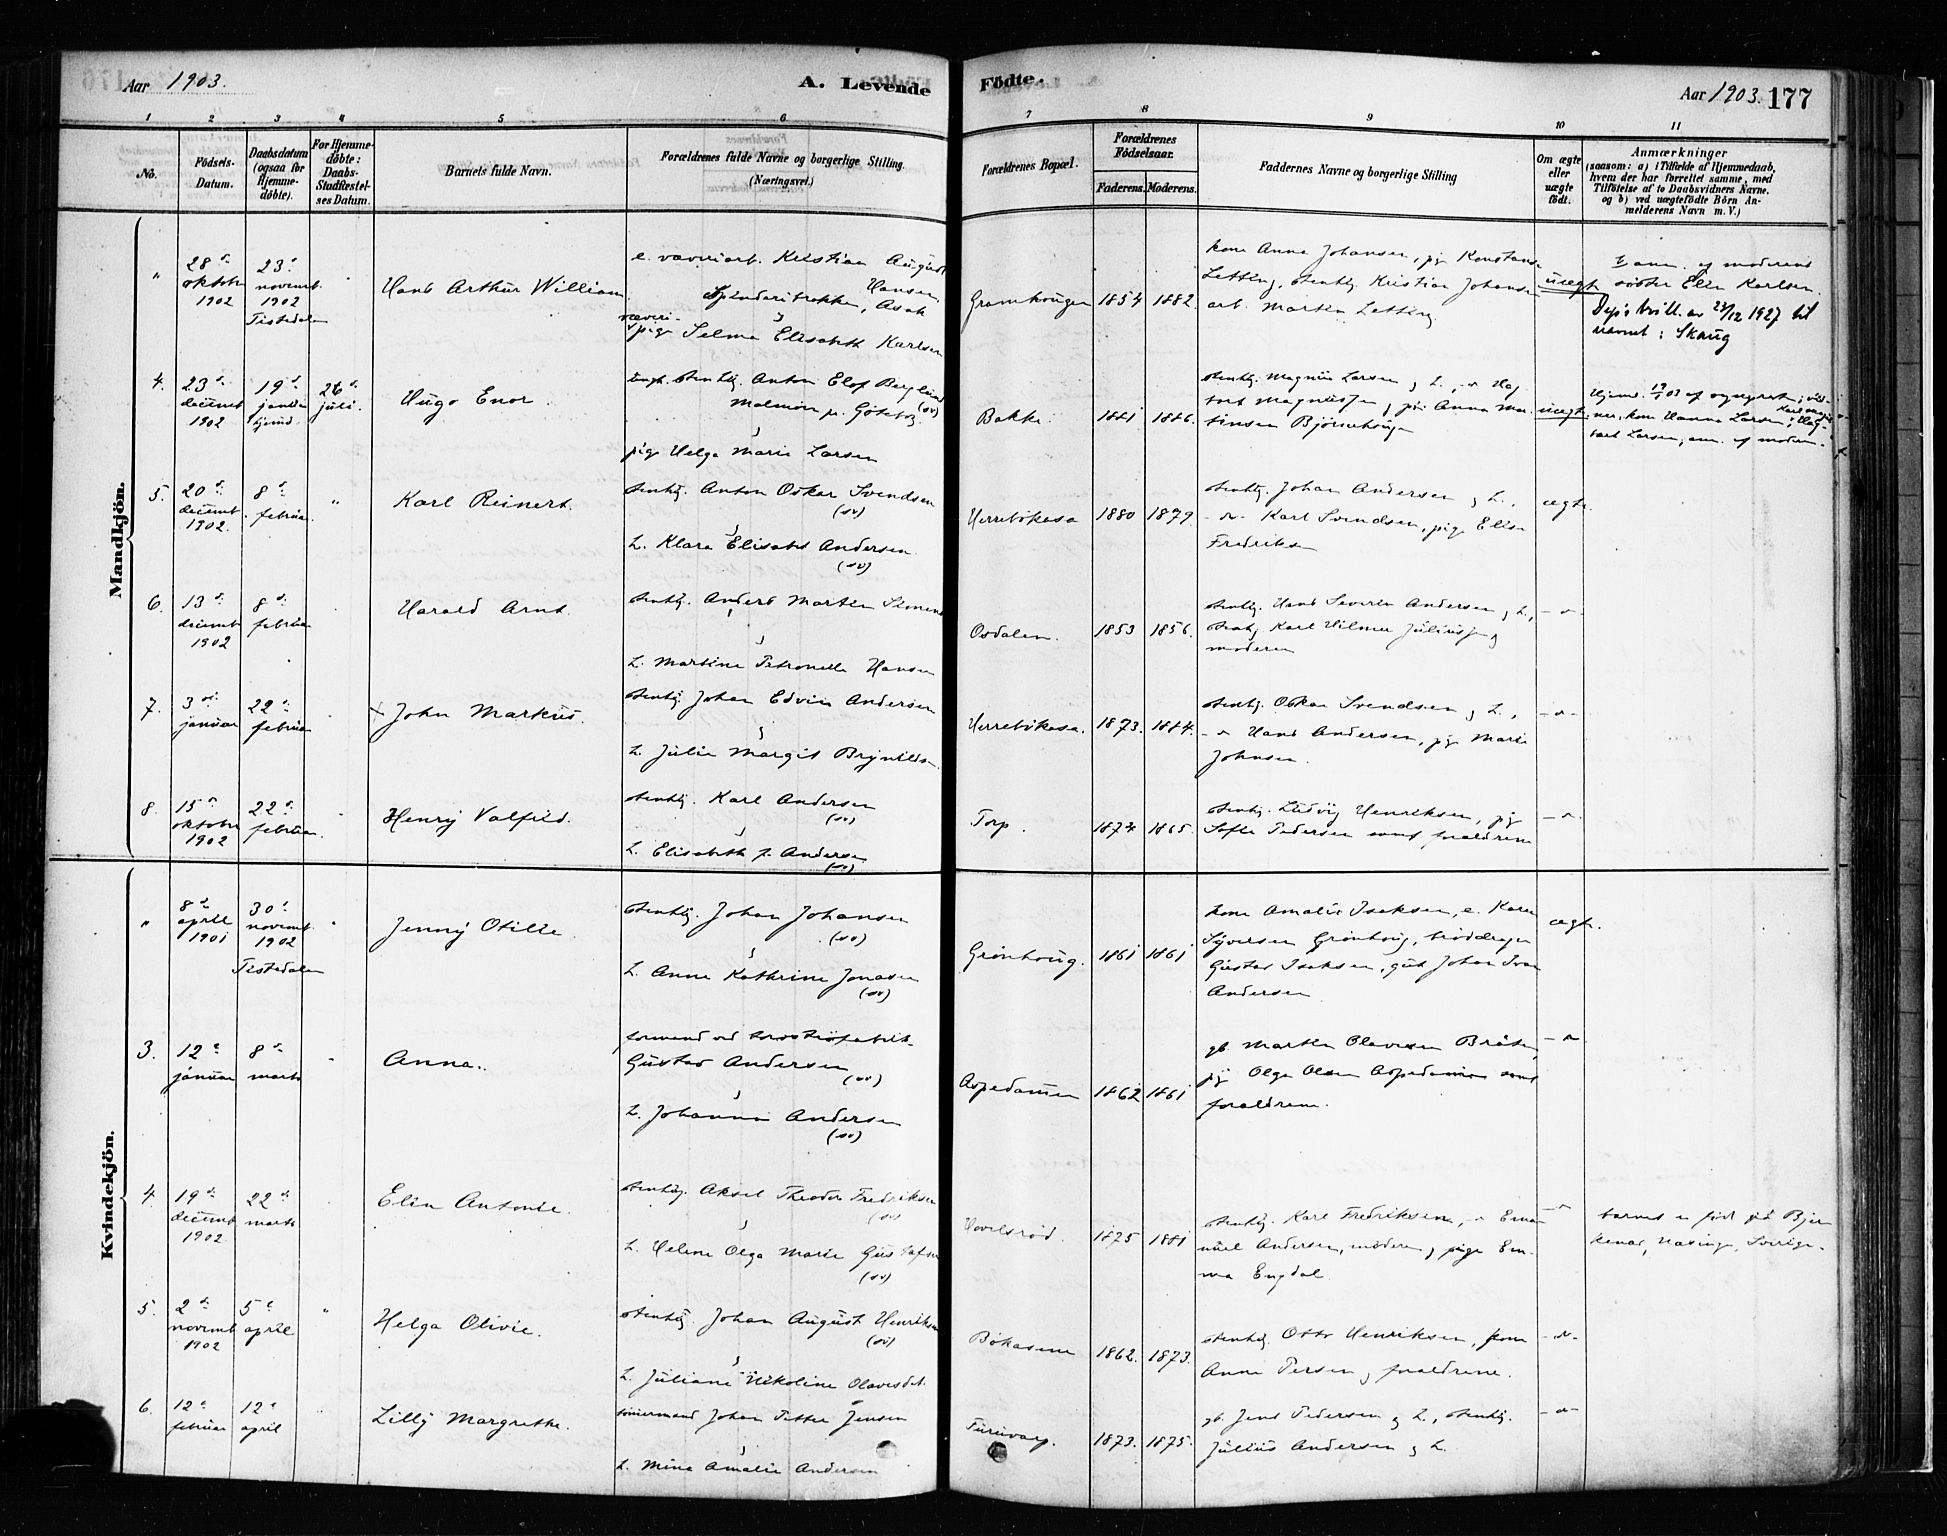 Aar 1903.
A. Levende
Födte.
Aar 1903. 177
1 2 3 4 5 6 7 8 9 10 11
No.
Födsels-
Datum.
Daabsdatum
(ogsaa for
Hjemme-
döbte).
For Hjemme-
döbte:
Daabs-
Stadfæstel-
ses Datum.
Barnets fulde Navn.
Forældrenes fulde Navne og borgerlige Stilling.
(Næringsvei.)
Forældrenes Bopæl.
Forældrenes
Födselsaar.
Faderens. Moderens.
Faddernes Navne og borgerlige Stilling
Om ægte
eller
uægte
født.
Anmærkninger
(saasom: a) i Tilfælde af Hjemmedaab,
hvem der har forrettet samme, med
Tilföielse af to Daabsvidners Navne,
og b) ved uægtefödte Börn An-
melderens Navn m. V.)
Mandkjön.
"
28de
oktober
1902
23de
novemb.
1902
Tistedalen
Hans Arthur William
e. væveriarb. Kristian August
Hansen
Spinderitrakken, Asak
væveri-
pige Selma Elisabeth Karlsen
Gramhougen
1854 1882.
kone Anna Johansen, pig Konstanse
Letting, stenhg. Kristian Johansen
arb. Martin Letting
uægte
anm. af moderens
søster Elen Karlsen.
Dep's bvill. av 23/12 1927 til
navnet: Skaug
4.
23de
decemb
1902
19de
januar
hjemd.
26de
juli.
Hugo Enor.
ungk. stenhg. Anton Elof Berglund
(sv)
Malmøn pr. Göteborg
pige Helga Marie Larsen
Bakke.
1881 1886.
stenhg. Magnus Larsen
Magnussen, pige Anna Mar
tinsen Bjørnehougen
uægte.
kone Hanna Larsen
Larsen, anm. af moderen
5.
20de
decemb.
1902.
8de
februar.
"
Karl Reinert.
stenhg. Anton Oskar Svendsen
(sv)
h. Klara Elisabet Andersen
(sv)
Herrebøkasa
1880 1879.
stenhg. Johan Andersen og h.,
Karl Svendsen, pige Elise
Fredriksen
ægte.
6.
13de
decemb
1902
8de
februar
Harald Arnt
stenhg. Anders Martin Simens
h. Martine Petronelle Hansen
Osdalen.
1853 1856.
stenhg. Hans Severin Andersen og h.,
stenhg Karl Hilmer Juliussen og
moderen
7.
3de
januar
22de
februar
x John Markus.
stenhg. Johan Edvin Andersen
h. Julie Margit Brynildsen
Herrebøkasa.
1873. 1884.
stenhg. Oskar Svendsen og h.,
Hans Andersen, pige Marie
Johnsen.
8.
15de
oktober
1902
22de
februar.
Henry Valfrid.
stenhg. Karl Andersen
(sv)
h. Elisabeth f. Andersen
(sv)
Torp.
1874 1865.
stenhg. Ludvig Henriksen, pige
Sofie Pedersen samt forældrene
Kvindekjön.
"
8de
april
1901
30te
novemb.
1902
Tistedalen
Jenny Otilie
stenhg. Johan Johansen
(sv)
h. Anne Kathrine Jonasen
(sv)
Grønhoug.
1861 1861
kone Amalie Isaksen, e. Karen
Syversen Grønhoug, brøddreyer
Gustav Isaksen, gut Johan Ivar
Andersen
ægte.
3.
12te
januar
8de
marts
Anna.
formand ved torvstrøfabrik
Gustav Andersen
(sv)
h. Johanna Andersen
(sv)
Aspedamen
1862 1861
gb. Martin Olavesen Bråten,
pige Olga Olsen Aspedamen samt
forældrene.
4
19de
decemb
1902.
22de
marts
Elin Antonie.
stenhg. Aksel Theodor Fredriksen
(sv)
h. Helene Olga Marie Gustafsen
(sv)
Havelsrød.
1875 1881
stenhg. Karl Fredriksen, Ema
nuel Andersen, moderen, pige Em-
ma Engdal.
barnet er født på Bjer
kenas, Nasinge, Sverige.
5.
2de
novemb
1902
5te
april
"
Helga Olivie.
stenhg Johan August Henriksen
(sv)
h. Juliane Nikoline Olavesdt.
Bøkasene
1862. 1873.
stenhg. Otto Henriksen, kone
Anne Persen og forældrene.
6.
12te
februar
12te
april
Lilly Margrethe.
tømmermand Johan Petter Jensen
h. Mina Amalie Andersen
Furuvarp.
1873. 1875.
gb. Jens Pedersen og h., stenhg.
Julius Andersen og h.